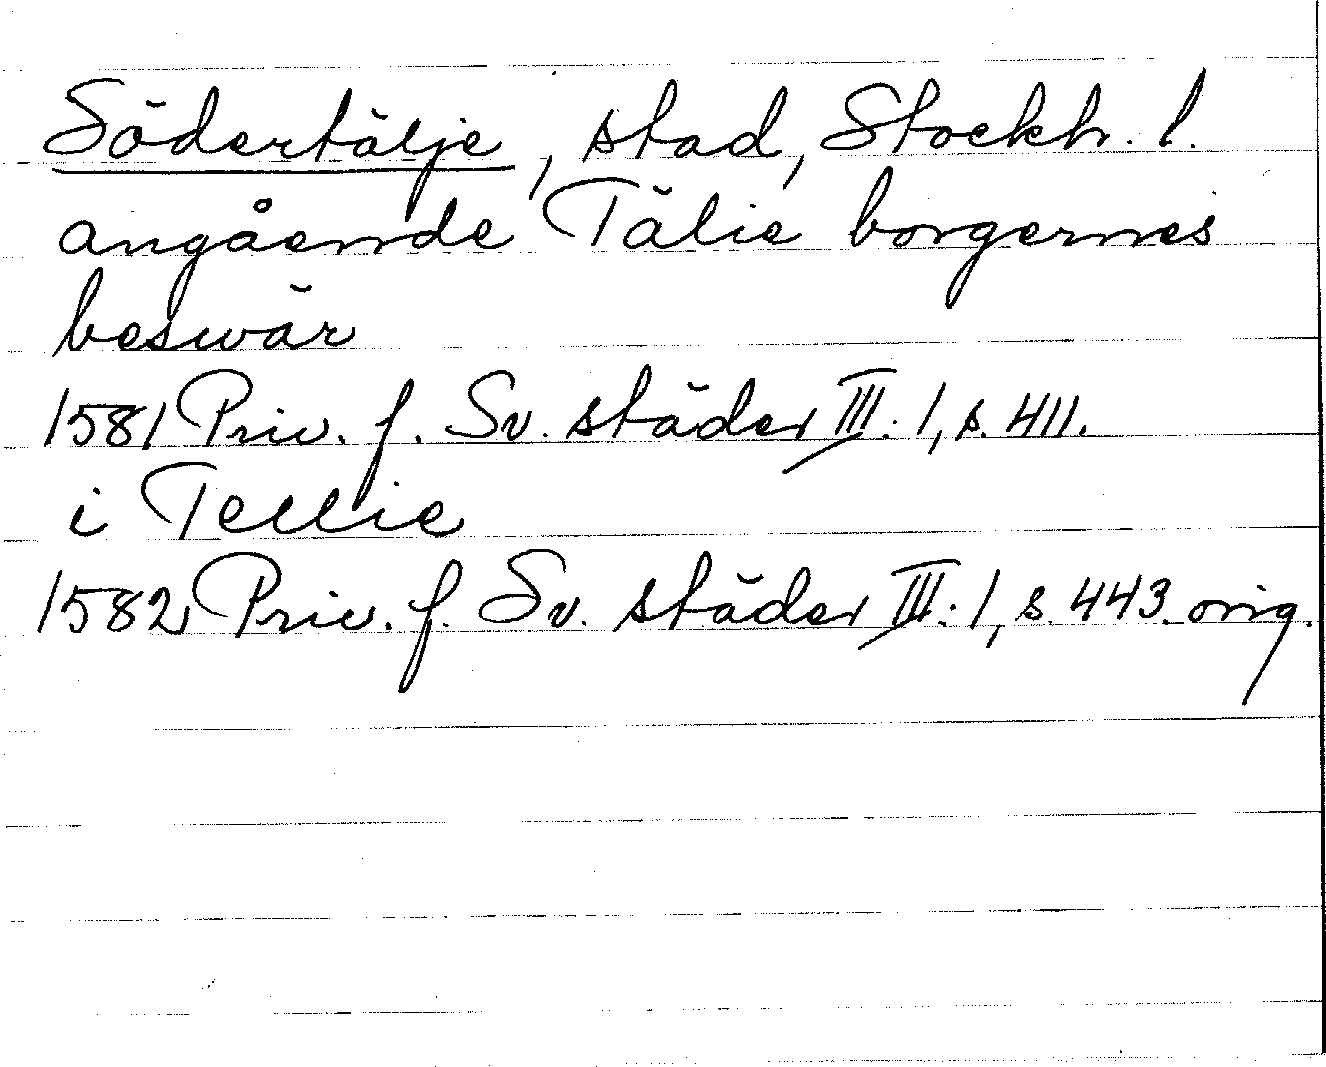 Södertälje, stad, Stockh. l.
angående Tälie borgernes
beswär
1581 Priv. f. Sv. städer III: 1, s. 411.
i Tellie
1582 Priv. f. Sv. städer III: 1, s. 443. orig.